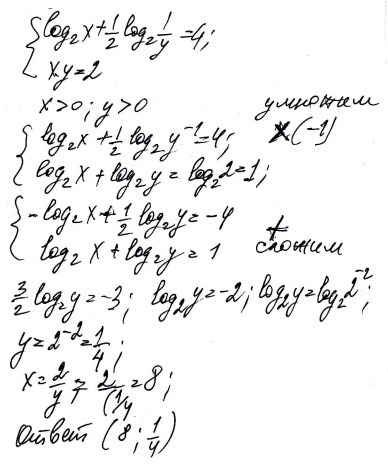 { log₂x + 1/2 log₂ 1/y = 4;
xy = 2
x>0; y>0
умножим
{ log₂x + 1/2 log₂y⁻¹ = 4; x(-1)
log₂x + log₂y = log₂2 = 1;
{ -log₂x + 1/2 log₂y = -4
log₂x + log₂y = 1 + сложим
3/2 log₂y = -3; log₂y = -2; log₂y = log₂2⁻²;
y = 2⁻² = 1/4;
x = 2/y = 2/(1/4 = 8;
Ответ (8; 1/4)